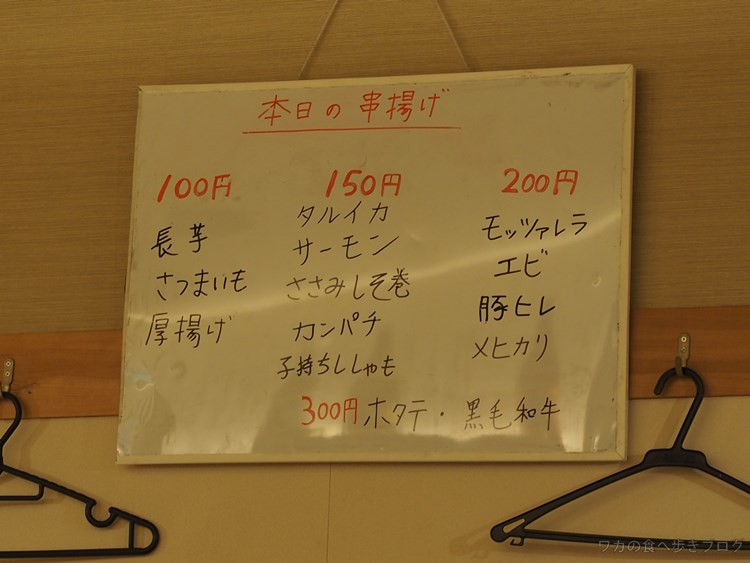 本日の串揚げ
100円
長芋
さつまいも
厚揚げ
150円
タルイカ
サーモン
ささみしそ巻
カンパチ
子持ちししゃも
200円
モッツァレラ
エビ
豚ヒレ
メヒカリ
300円 ホタテ・黒毛和牛
ワカの食べ歩きブログ